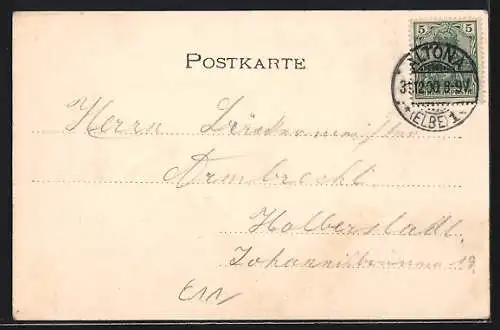 POSTKARTE
5 5
ALTONA
31.12.00.8-9V.
* (ELBE) 1 *
Herrn
Armbrecht
Halberstadt.
Johannisbrunnen 19.